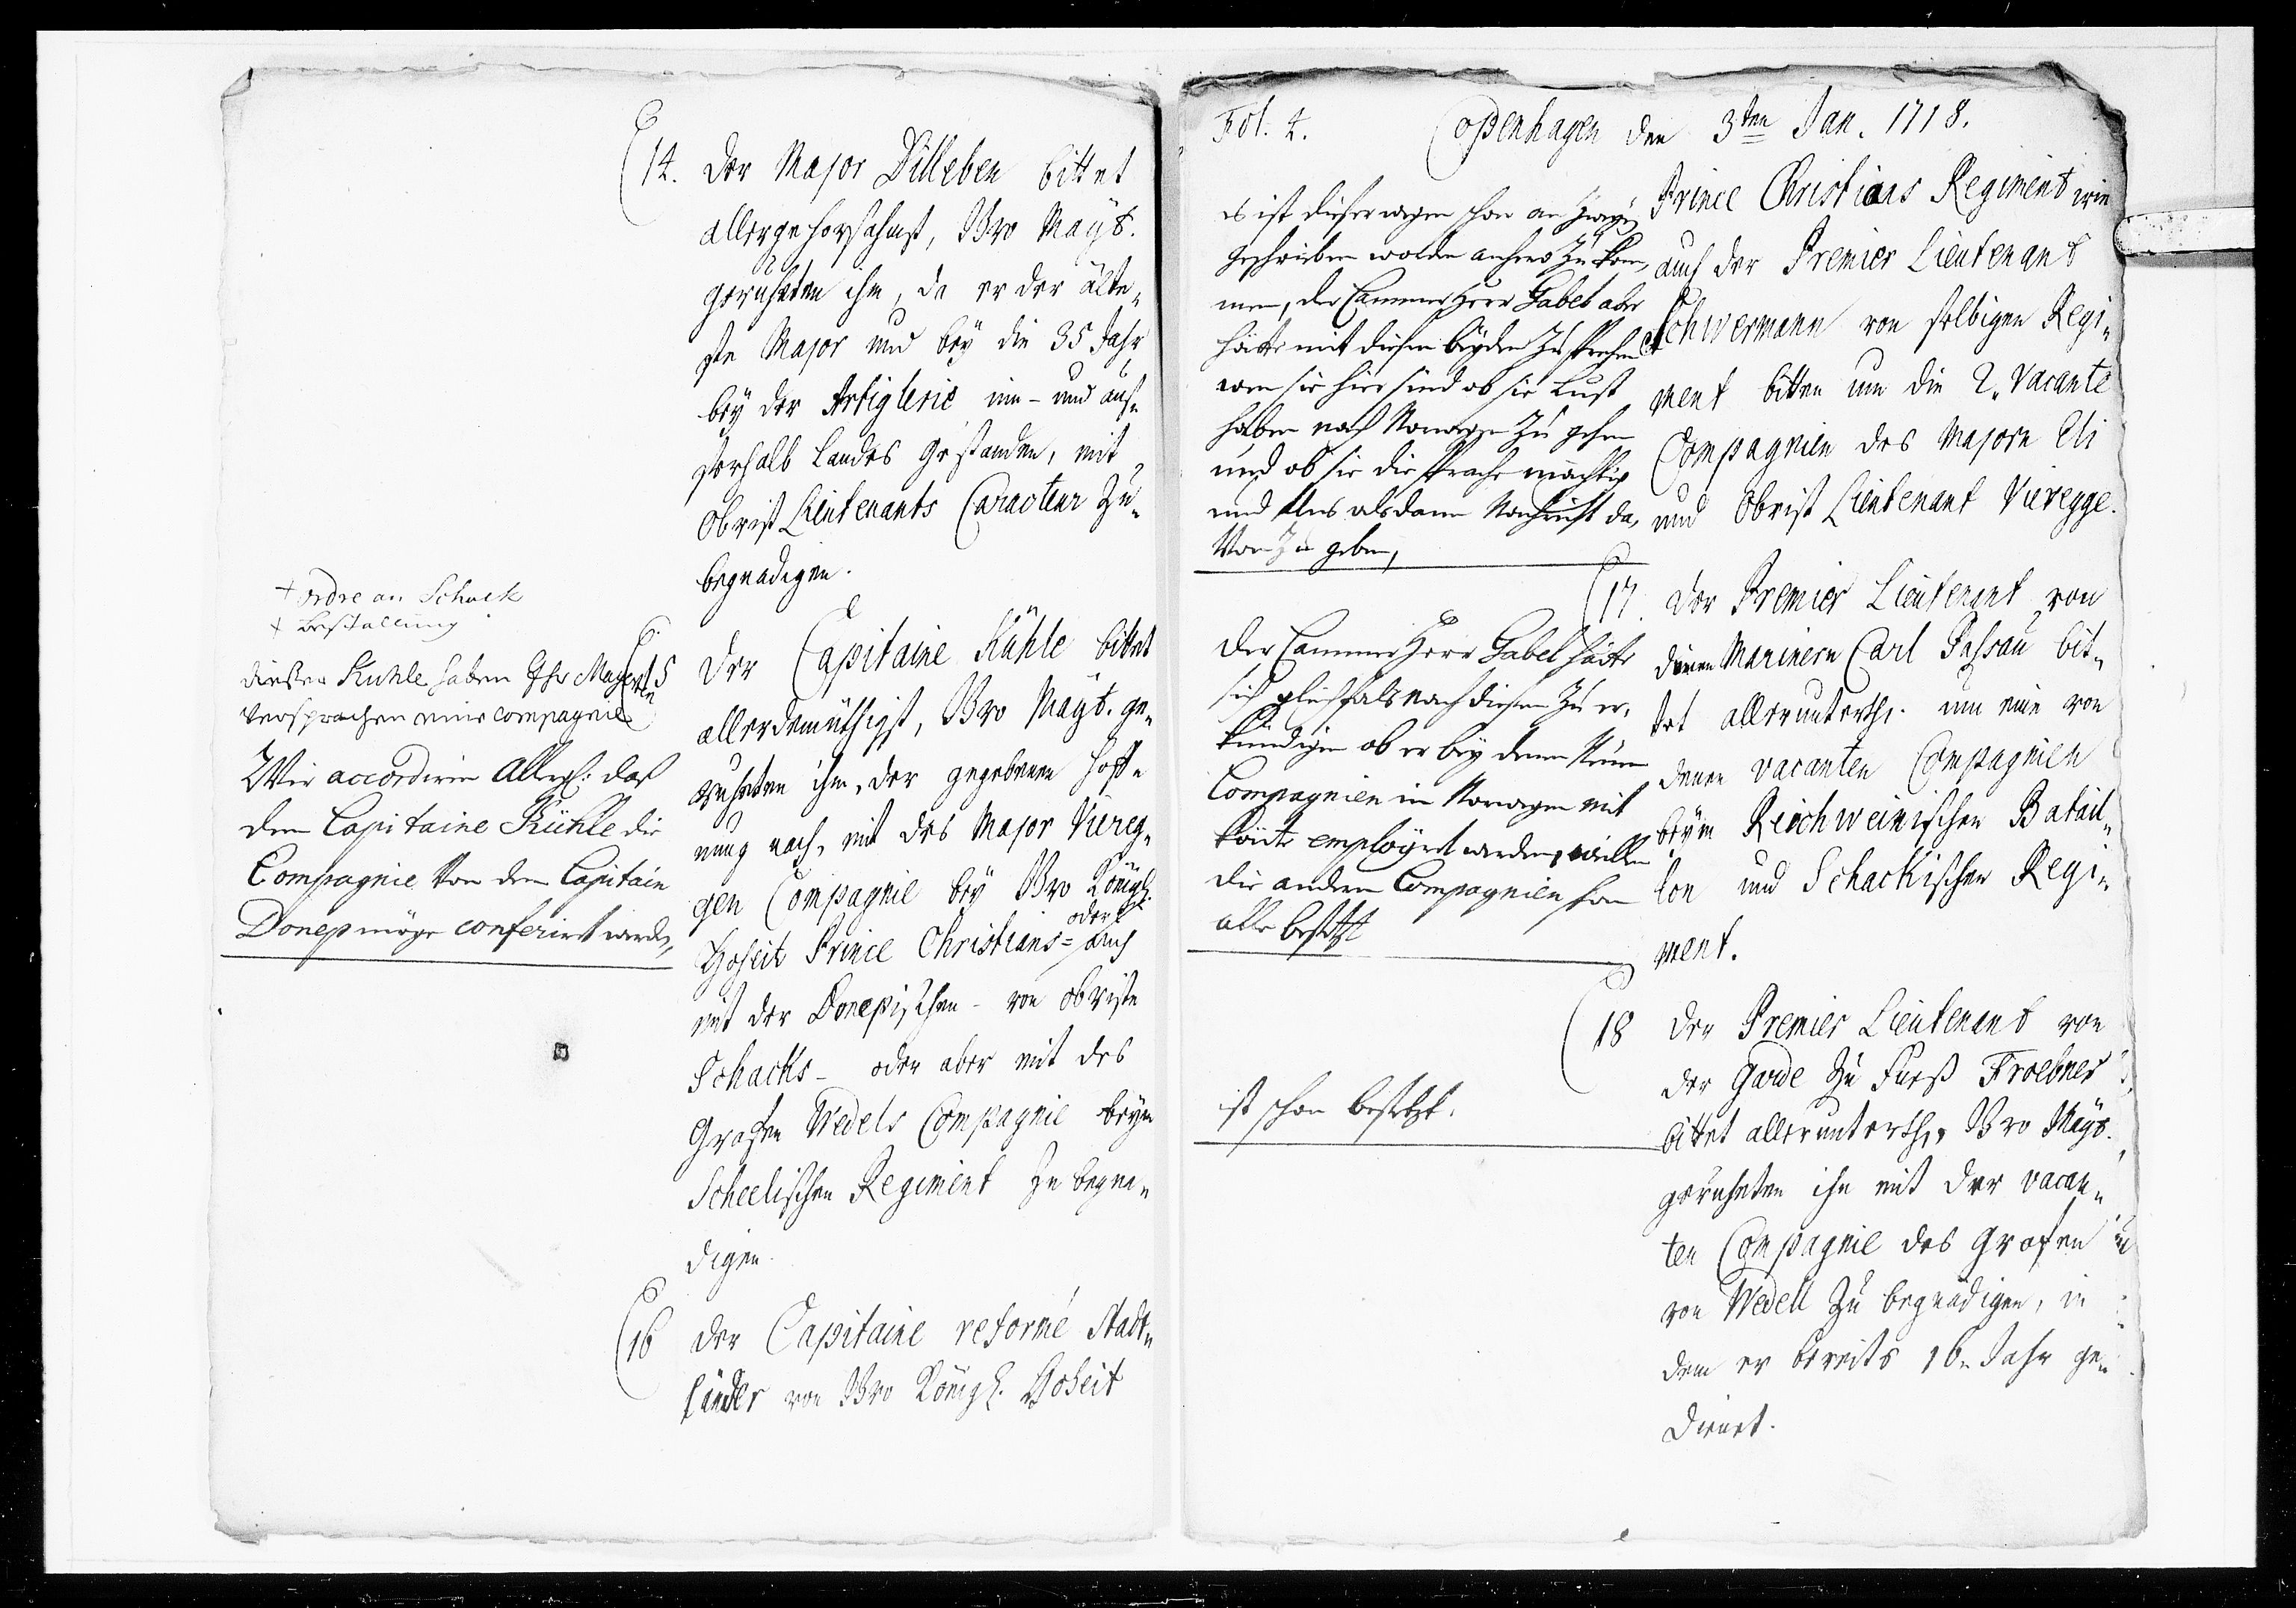 14. Der Major Dilleben bittet
allergehorsahmst, Ihro Mayt.
geruheten ihm, da er der älte-
ste Major und bey die 35 Jahr
bey der Artiglerie inn- und aus-
serhalb Landes gestanden, mit
Obrist Lieutenants Caracteur zu
begnadigen.
+ ordre an Schack
+ bestallung
dießen Kuhle haben Ihr Mayt
versprochen eine compagnie
Wir accordiren Allergn: daß
dem Capitaine Kühle die
Compagnie von dem Capitain
Donep möge conferirt werden,
15 Der Capitaine Kühle bittet
allerdemüthigst, Ihro Mayt. ge-
ruheten ihm, der gegebenen Hoff-
nung nach, mit des Major Viereg-
gen Compagnie bey Ihro Königl.
Hoheit Prince Christians- oder auch
mit der Donepischen- von Obriste
Schacks- oder aber mit des
Grafen Wedels Compagnie beym
Scheelischen Regiment zu begna-
digen.
16 Der Capitaine reformé Stadt-
länder von Ihro Königl. Hoheit
Fol. 4. Copenhagen den 3ten Jan. 1718.
Prince Christians Regiment wie
auch der Premier Lieutenant
Schwermann von selbigen Regi-
ment bitten um die 2. vacante
Compagnien des Majorn Eli
und Obrist Lieutenant Vieregge.
es ist dieserwegen schon an
geschrieben worden anhero zu kom-
men, der Cammer Herr Gabel aber
hätte mit diesen beyden zu sprechen
wen sie hier sind ob sie Lust
haben nach Norwegen zu gehen
und ob sie die Sprache mächtig
und Uns alsdann Nachricht da-
von zu geben,
17. Der Premier Lieutenant von
denen Marinern Carl Passau bit-
tet allerunterth. um eine von
denen vacanten Compagnien
beym Reichweinischen Batail-
lon und Schackischen Regi-
ment.
Der Cammer Herr Gabel hätte
sich gleichfals nach diesen zu er-
kundigen ob er bey denen Neuen
Compagnien in Norwegen mit
könte employirt werden, weillen
die andern Compagnien schon
alle besetzt
18 Der Premier Lieutenant von
der Garde zu Fueß Froebner
bittet allerunterth. Ihro Mayt.
geruheten ihn mit der vacan-
ten Compagnie des Grafen
von Wedell zu begnadigen, in
dem er bereits 16. Jahr ge-
dienet.
ist schon besetzt.